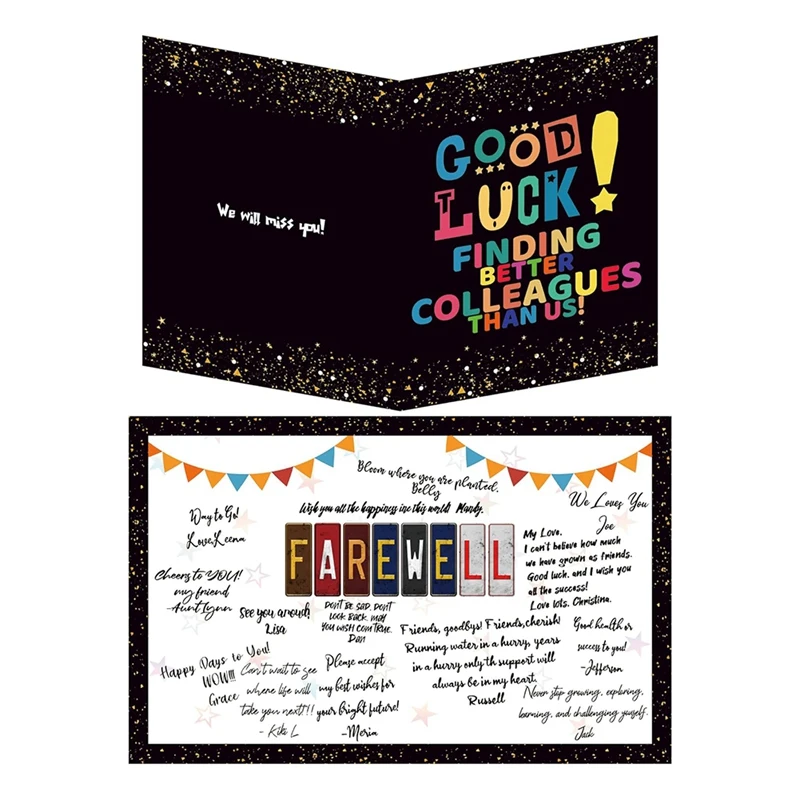 We will miss you!
GOOD
LUCK!
FINDING
BETTER
COLLEAGUES
THAN US!
Bloom where you are planted.
Belly
Wish you all the happiness inc this world! Mandy.
Way to Go!
Love,Leena
We Loves You
Joe
FAREWELL
My Love,
I can't believe how much
we have grown as friends.
Good luck, and I wish you
all the success!
Love lots, Christina.
Cheers to YOU!
my friend
-Aunt Lynn
See you around!
Lisa
Don't be sad, don't
look back, may
you wish com true.
Dan
Friends, goodbys! Friends,cherish!
Running water in a hurry, years
in a hurry only th support will
always be in my heart.
Russell
Good health or
success to you!
-Jefferson
Happy Days to You!
WOW!!!
Grace
Can't wait to see
where life will
take you next!!!
- Kiki L
Please accept
my best wishes for
your bright future!
-Meria
Never stop growing, exploring,
learning, and challenging yourself.
Jack